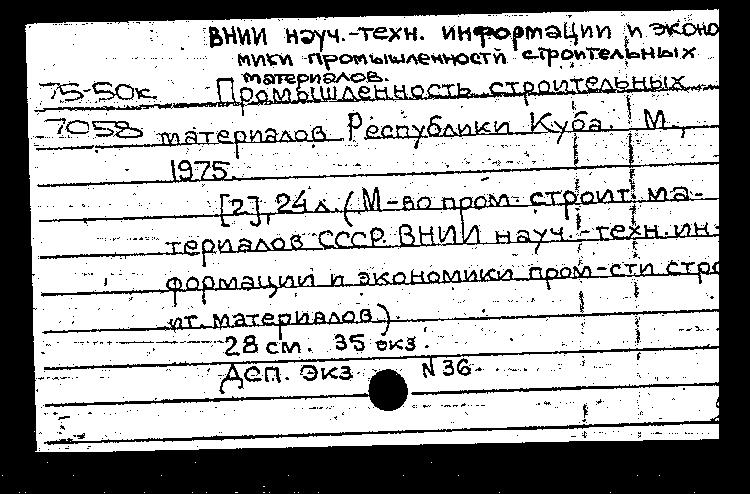 ВНИИ науч.-техн. информации и эконо
мики промышленности строительных
материалов.
75-50к Промышленность строительных
7058 материалов Республики Куба. М.,
1975.
[2], 24 л. (М-во пром. строит. ма-
териалов СССР. ВНИИ науч.-техн. ин-
формации и экономики пром-сти стро
ит. материалов).
28 см. 35 экз.
Деп. экз N 36